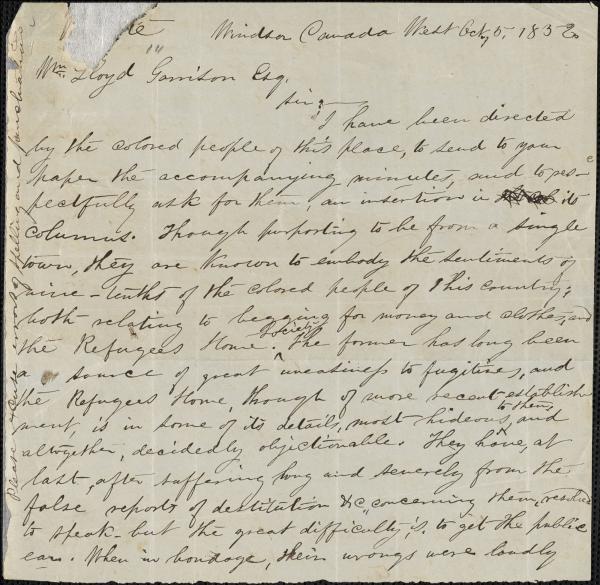 Windsor Canada West Oct, 5, 1852
Wm. Lloyd Garrison Esq.
Sir;
I have been directed
by the colored people of this place, to send to your
paper the accompanying minutes, and to res-
pectfully ask for them, an insertion in its
columns. Though purporting to be from a single
town, they are known to embody the sentiments of
nine-tenths of the colored people of this country;
both relating to begging for money and clothes, and
the Refugees Home Society. The former has long been
a source of great uneasiness to fugitives, and
the Refugees Home, though of more recent establish
ment, is in some of its details, most hideous to them, and
altogether, decidedly objectionable. They have, at
last, after suffering long and severely from the
false reports of destitution &c, concerning them, resolved
to speak - but the great difficulty is, to get the public
ear. When in bondage, their wrongs were loudly
Please excuse errors of spelling and punctuation